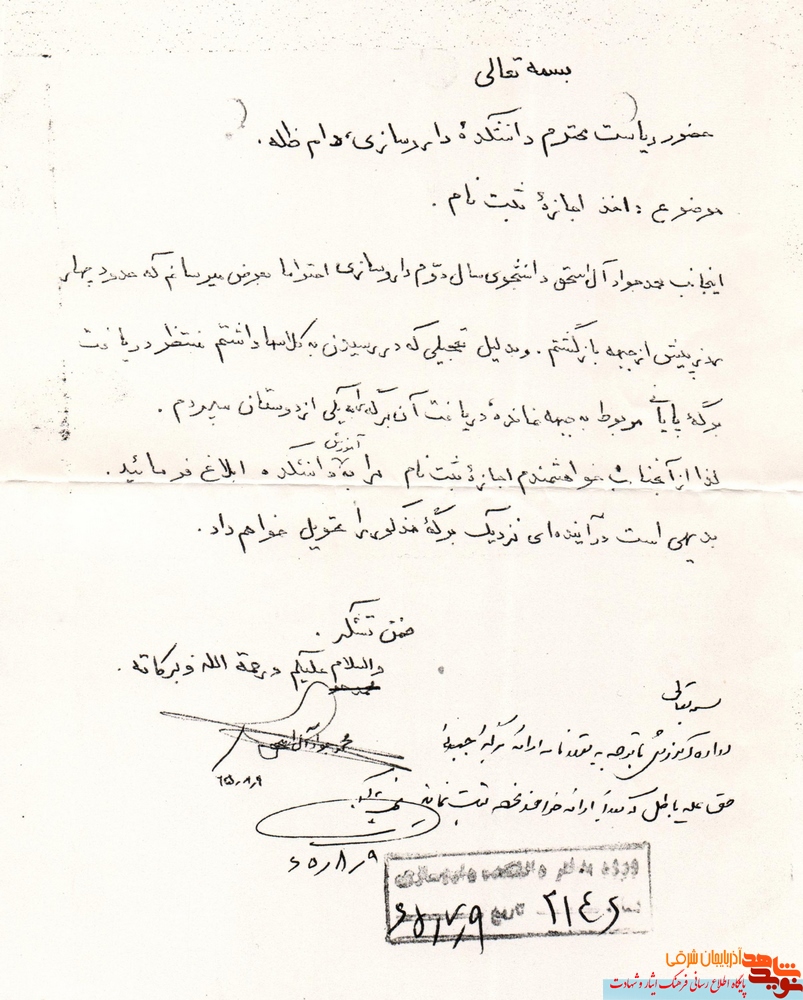 بسمه تعالی
حضور ریاست محترم دانشکدهٔ داروسازی، دام ظله.
موضوع : اخذ اجازهٔ ثبت نام .
اینجانب محمدجواد آل اسحق دانشجوی سال دوّم داروسازی احتراما بعرض میرسانم که حدود چهار
روز پیش از جبهه بازگشتم . وبدلیل تعجیلی که در رسیدن به کلاسها داشتم منتظر دریافت
برگهٔ پایانی مربوط به جبهه نمانده دریافت آن برگه را به یکی از دوستان سپردم .
آموزش
لذا از آنجناب خواهشمندم اجازهٔ ثبت نام مرا به دانشکده ابلاغ فرمائید.
بدیهی است در آینده‌ای نزدیک برگهٔ مذکور را تحویل خواهم داد.
ضمن تشکر .
والسلام علیکم و رحمة الله وبرکاته .
محمدجواد آل اسحق
۶۵/۸/۹
بسمه تعالی
اداره آموزش با توجه به تعهدنامه ارائه برگه
حق علیه باطل که بعداً ارائه خواهند ثبت نام
۶۵/۸/۹
دفتر دانشکده داروسازی
۲۱۴۶
۶۵/۷/۹
نوید شاهد آذربایجان شرقی
پایگاه اطلاع رسانی فرهنگ ایثار و شهادت